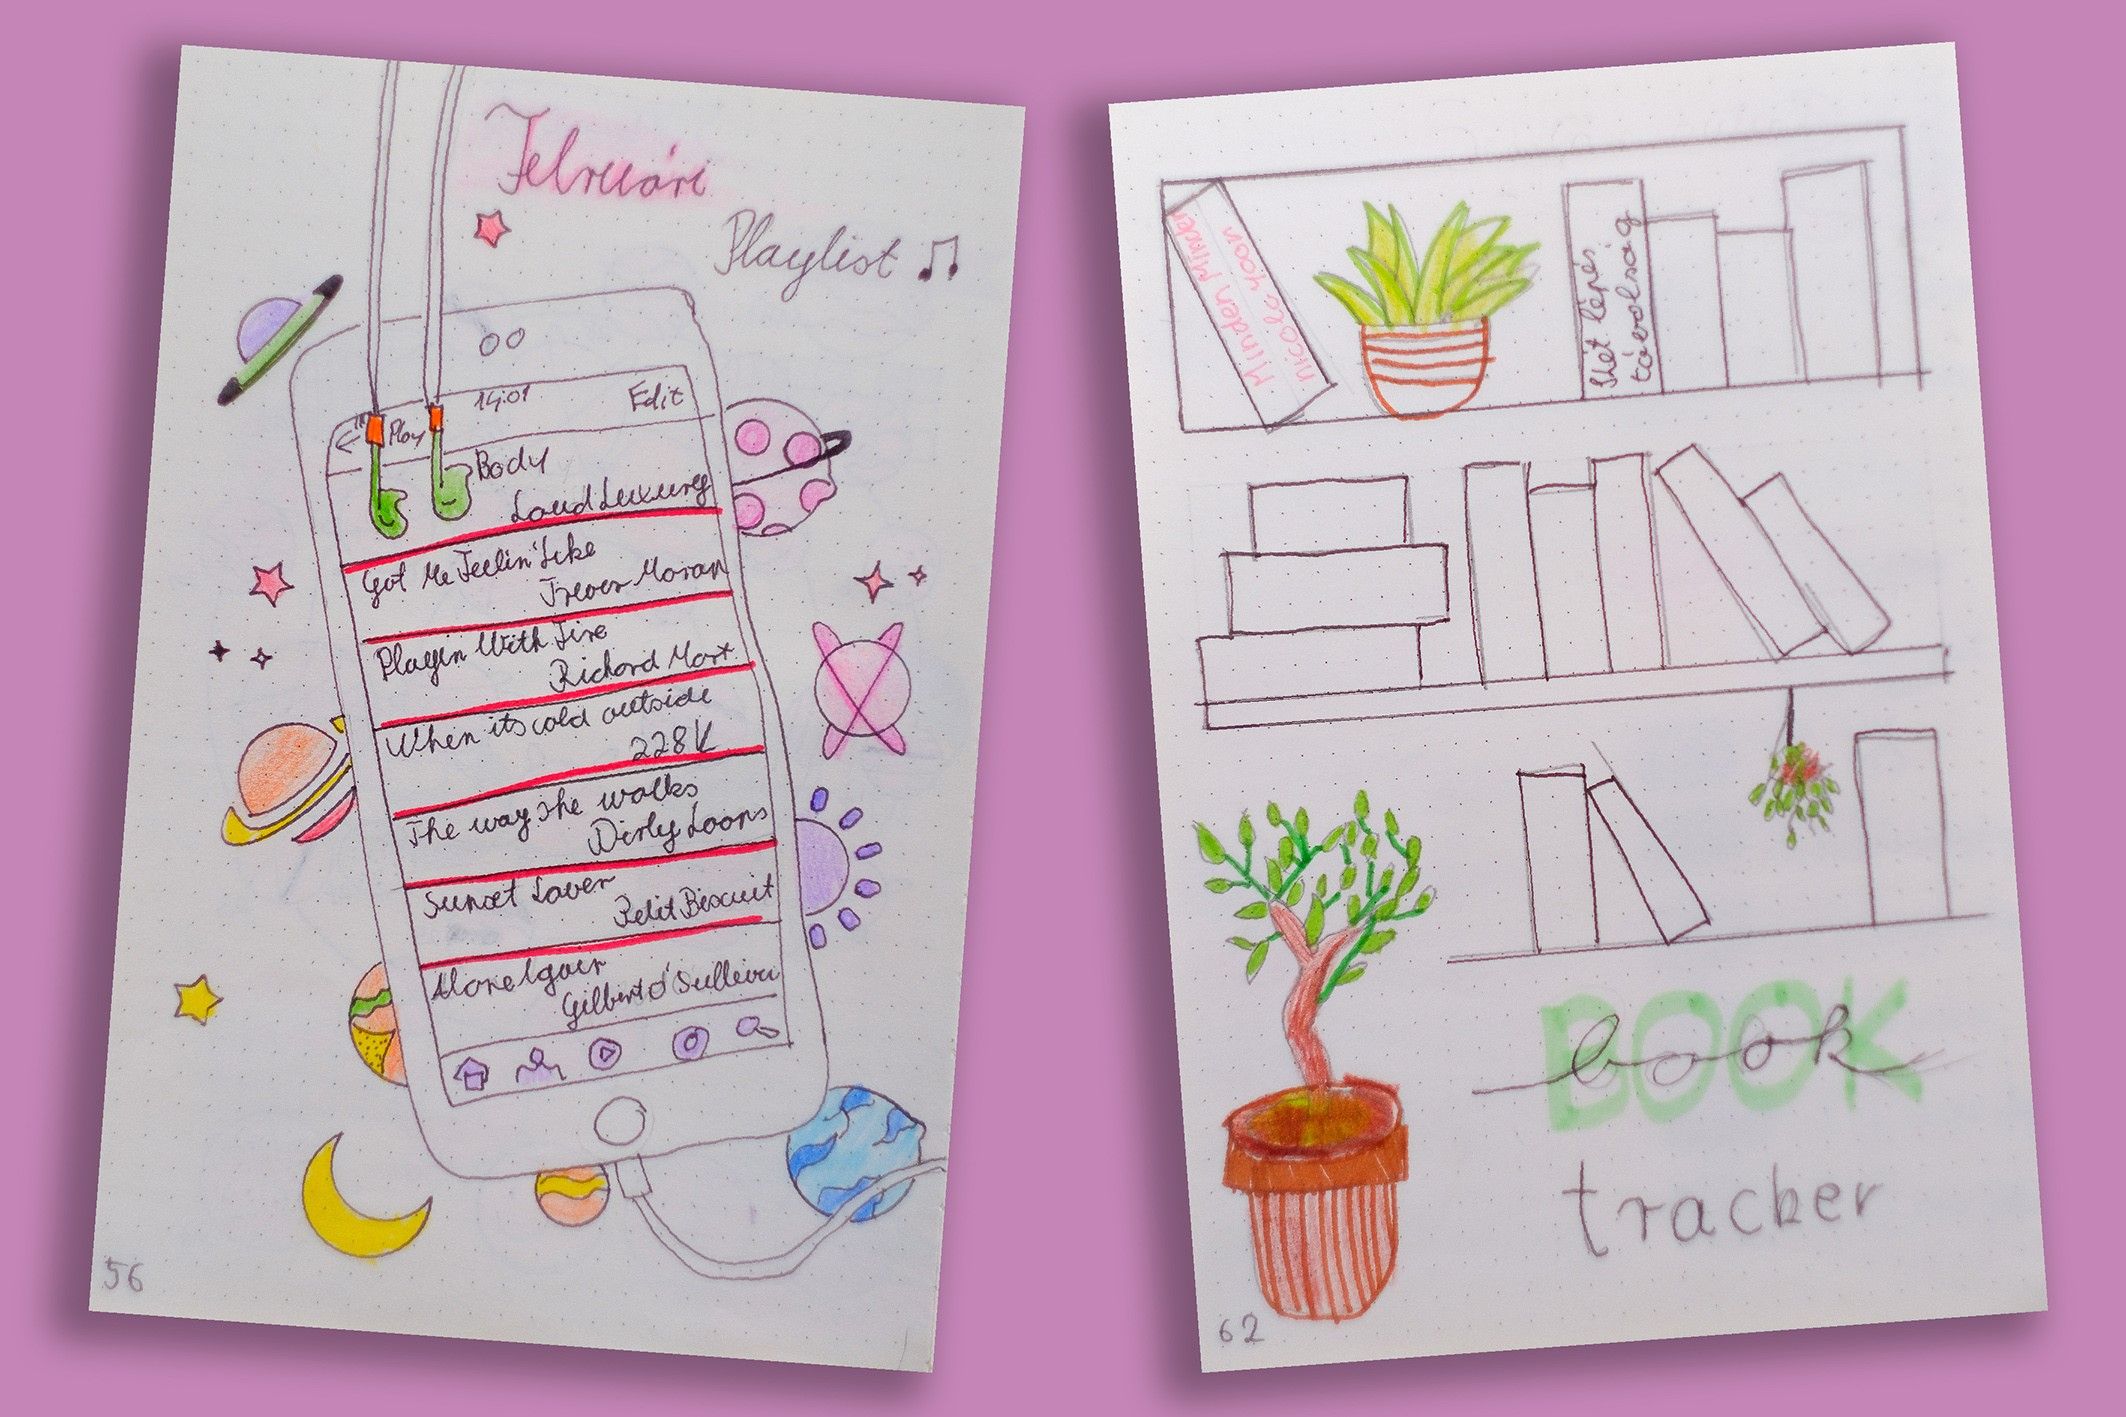 Februári
Playlist
14:01
Edit
Play
Body
Loud Luxury
Got Me Feelin' Like
Trevor Moran
Playin With Fire
Richard Mart
When its cold outside
228K
The way she walks
Dirty Loops
Sunset Lover
Petit Biscuit
Alone Again
Gilbert O'Sullivan
56
Minden Minden
nicola yoon
Két lépés
távolság
BOOK
book
tracker
62